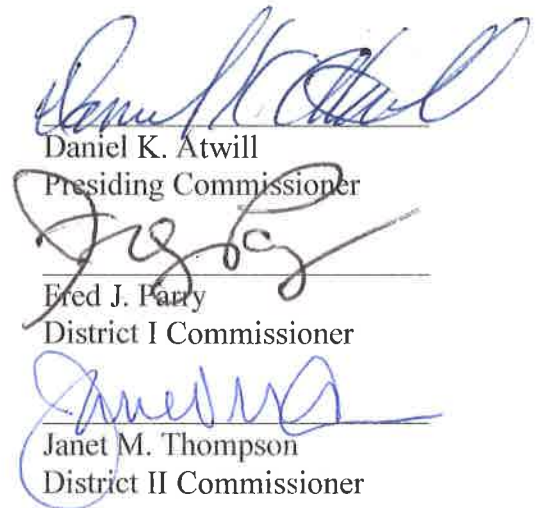 Daniel K. Atwill
Daniel K. Atwill
Presiding Commissioner
Fred J. Parry
District I Commissioner
Janet M. Thompson
District II Commissioner